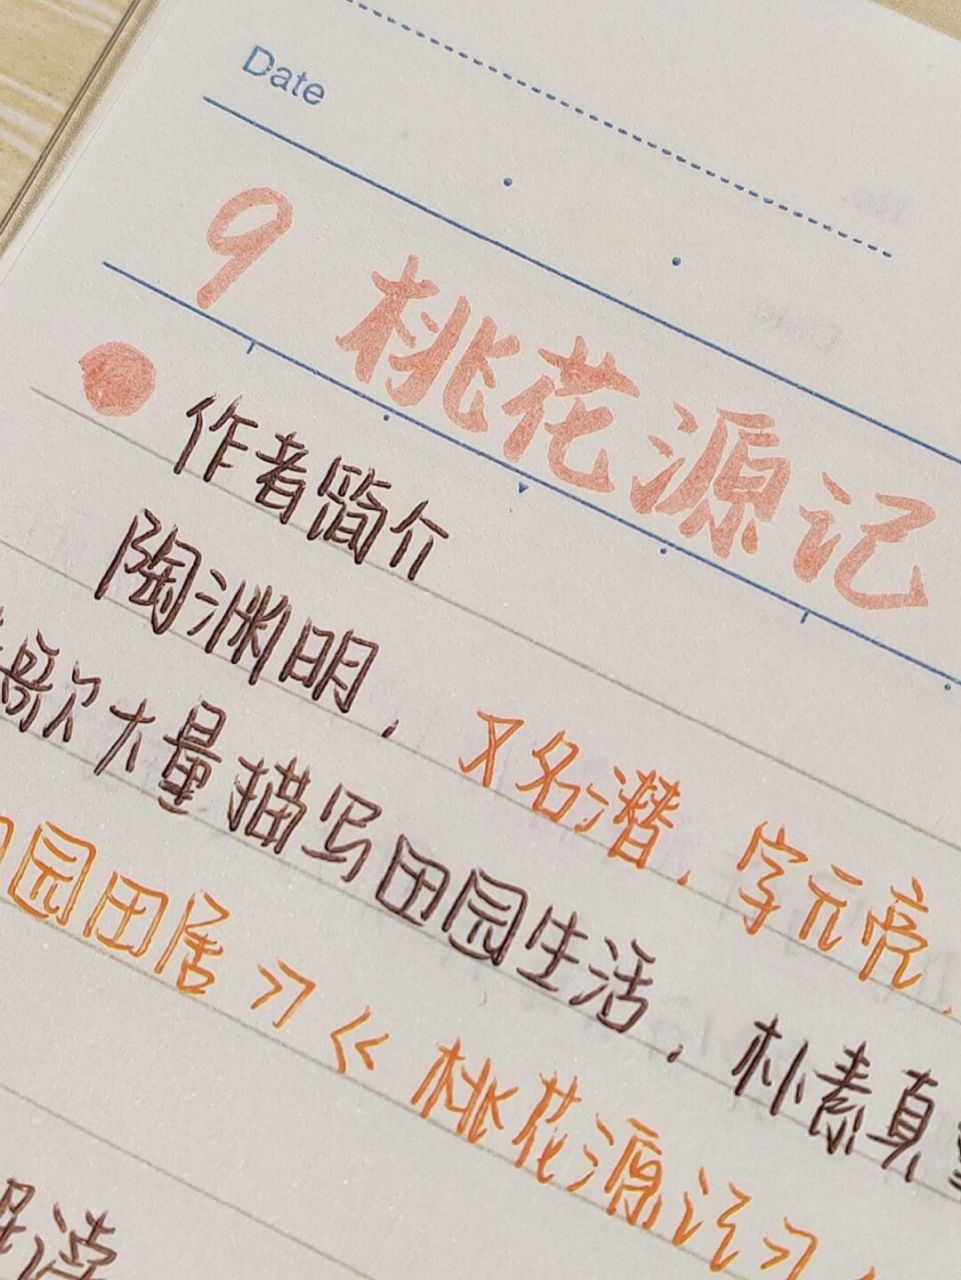 Date
9 桃花源记
作者简介
陶渊明，又名潜，字元亮，
歌大量描写田园生活，朴素真
园田居》《桃花源记》
读